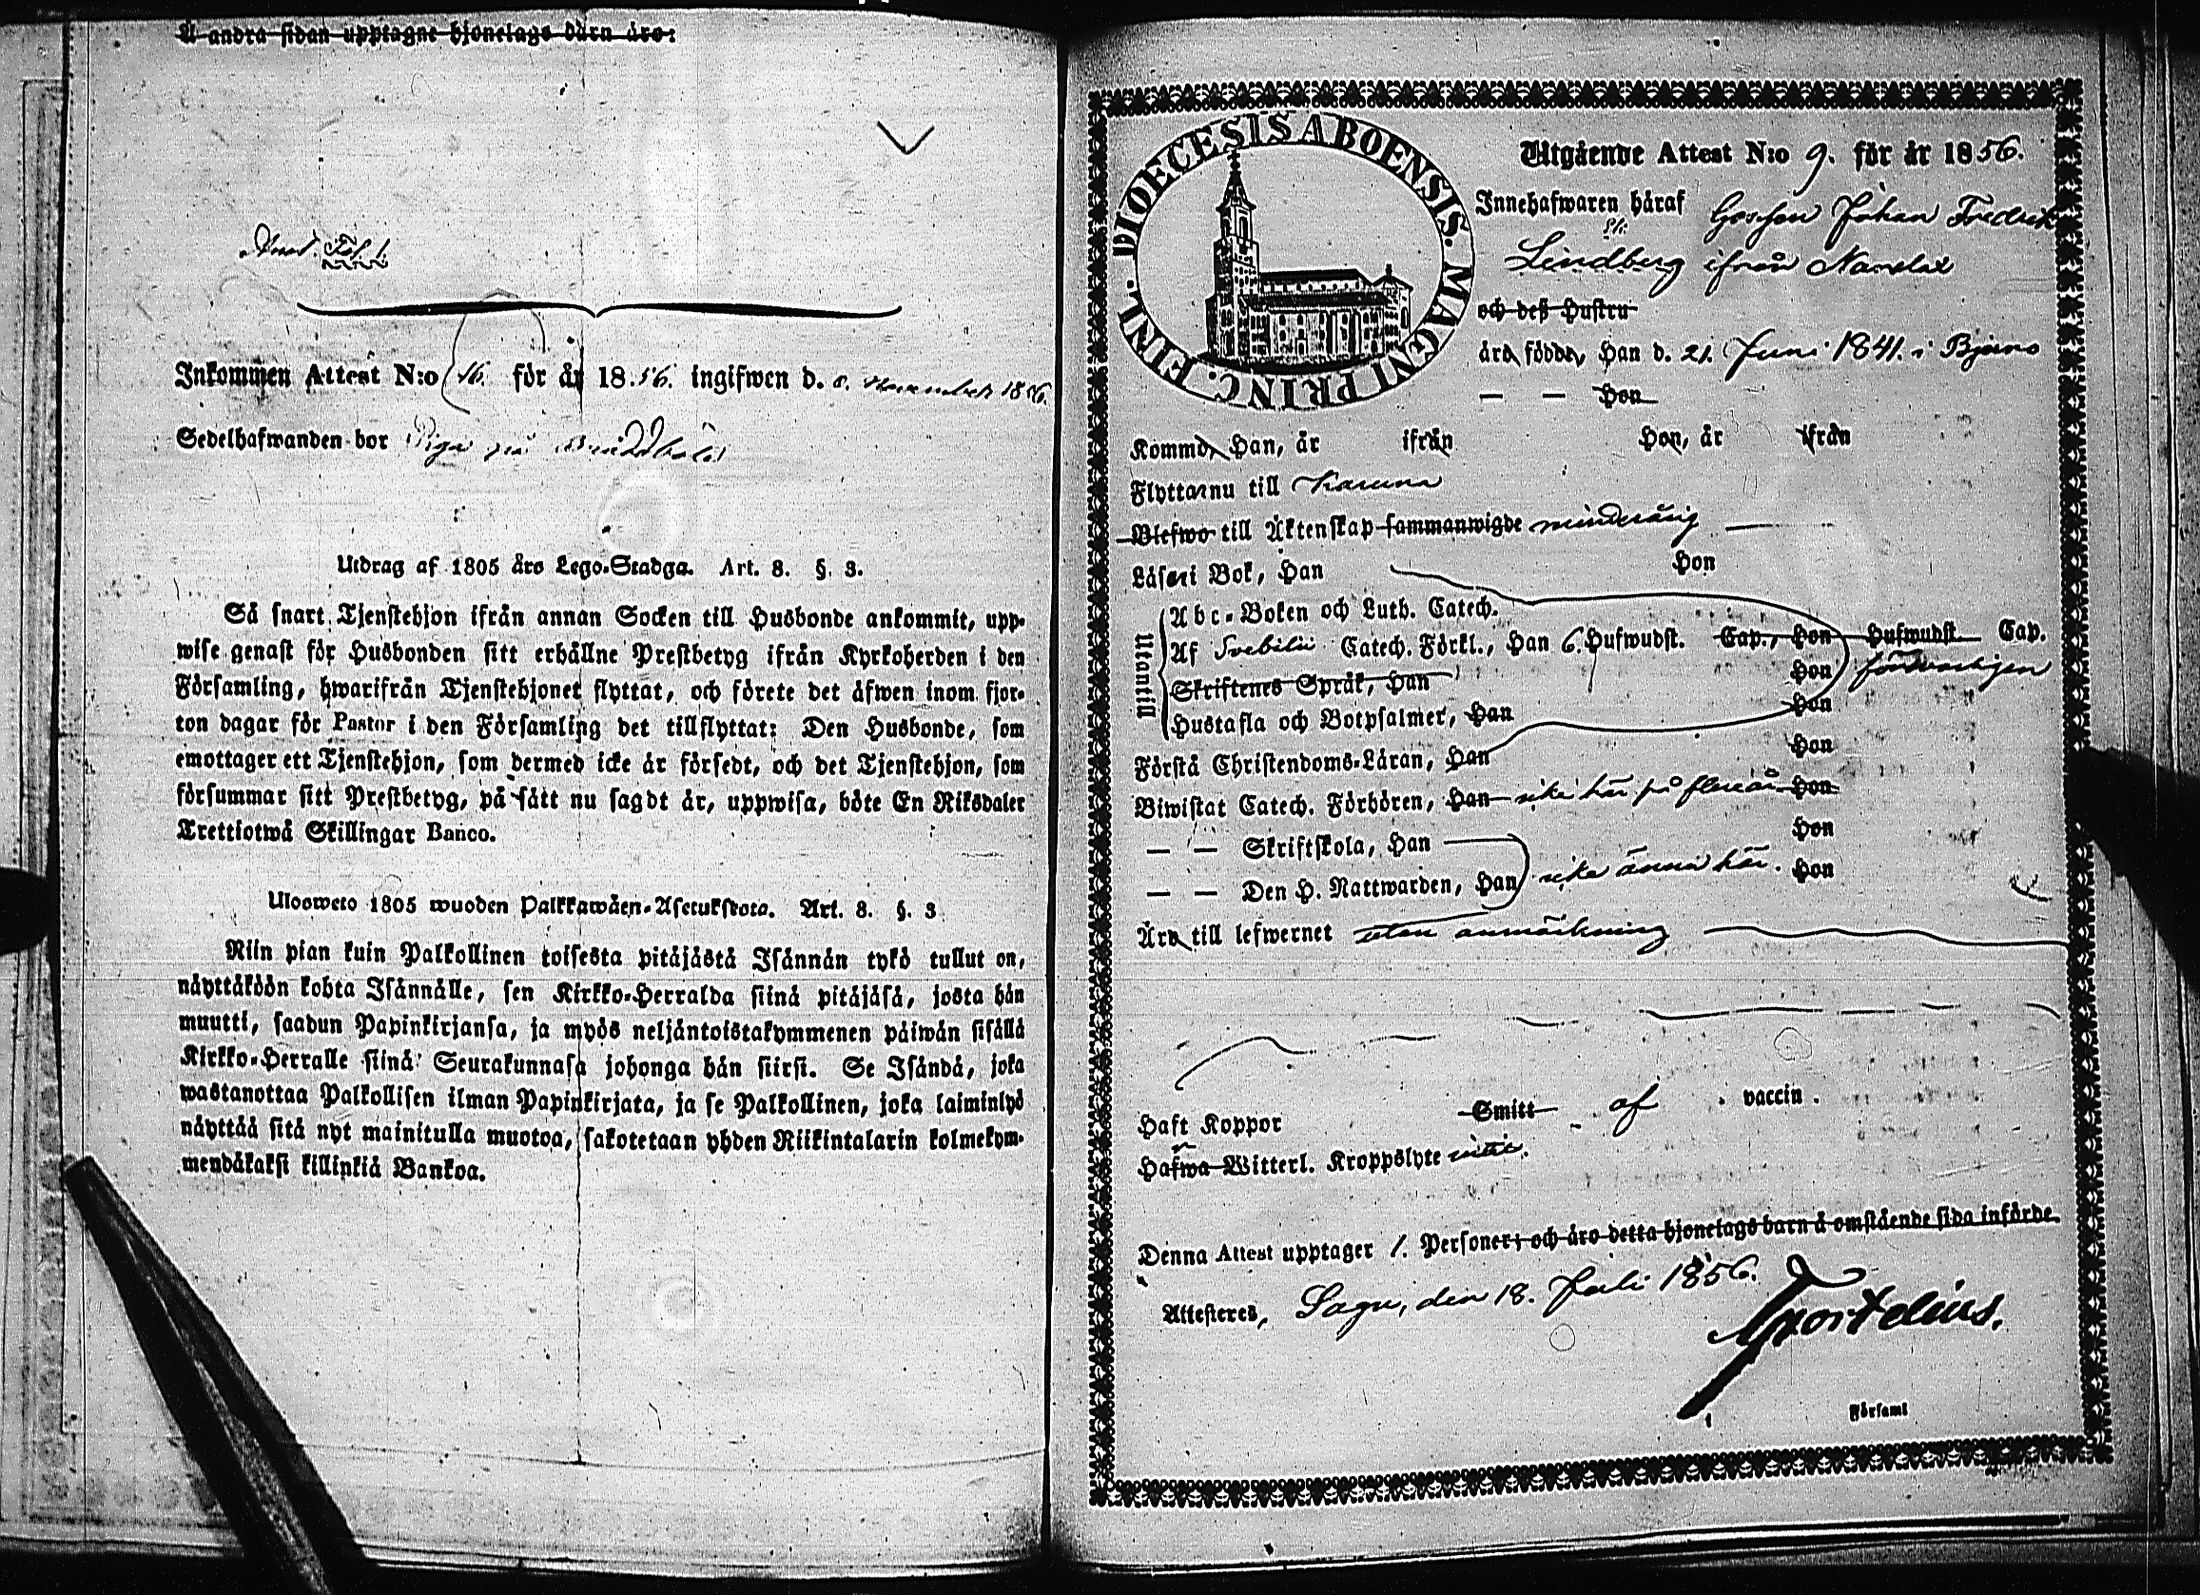 A andra sidan upptagne hjonelags barn äro:
Inkommen Attest N:o 16. för år 1856. ingifwen d. 8. November 1856.
Sedelhafwanden bor Piga på
Utdrag af 1805 års Lego-Stadga. Art. 8. §. 3.
Så snart Tjenstehjon ifrån annan Socken till Husbonde ankommit, upp-
wise genast för Husbonden sitt erhållne Prestbetyg ifrån Kyrkoherden i den
Församling, hwarifrån Tjenstehjonet flyttat, och förete det äfwen inom fjor-
ton dagar för Pastor i den Församling det tillflyttat; Den Husbonde, som
emottager ett Tjenstehjon, som dermed icke är försedt, och det Tjenstehjon, som
försummar sitt Prestbetyg, på sätt nu sagdt är, uppwisa, böte En Riksdaler
Trettiotwå Skillingar Banco.
Ulosweto 1805 wuoden Palkkawäen-Asetuksesta. Art. 8. §. 3
Niin pian kuin Palkollinen toisesta pitäjästä Isännän tykö tullut on,
näyttäköön kohta Isännälle, sen Kirkko-Herralda siinä pitäjäsä, josta hän
muutti, saadun Papinkirjansa, ja myös neljäntoistakymmenen päiwän sisällä
Kirkko-Herralle siinä Seurakunnasa johonga hän siirsi. Se Isändä, joka
wastanottaa Palkollisen ilman Papinkirjata, ja se Palkollinen, joka laiminlyö
näyttää sitä nyt mainitulla muotoa, sakotetaan yhden Riikintalarin kolmekym-
mendäkaksi killinkiä Bankoa.
DIOECESIS ABOENSIS. MAGNI PRINC. FINL.
Utgående Attest N:o 9. för år 1856.
Innehafwaren häraf Gossen Johan Fredrik
Lindberg ifrån
och deß Hustru
äro födde, Han d. 21. Juni 1841. i Bjerno
— — Hon
Kommo, Han, år ifrån Hon, år ifrån
Flyttar nu till Karuna
Blefwo till Äktenskap sammanwigde minderårig
Läser i Bok, Han Hon
Utantill
Abc-Boken och Luth. Catech.
Af Svebilii Catech. Förkl., Han 6. Hufwudst. Cap., Hon Hufwudst. Cap.
Skriftenes Språk, Han Hon
Hustafla och Botpsalmer, Han Hon
Förstå Christendoms-Läran, Han Hon
Biwistat Catech. Förhören, Han icke här på flere år Hon
— — Skriftskola, Han Hon
— — Den H. Nattwarden, Han icke ännu här. Hon
Äro till lefwernet utan anmärkning
Haft Koppor Smitt af vaccin.
Hafwa Witterl. Kroppslyte intet.
Denna Attest upptager 1. Personer; och äro detta hjonelags barn å omstående sida införde.
Attesteres, Sagu, den 18. Juli 1856.
Församl